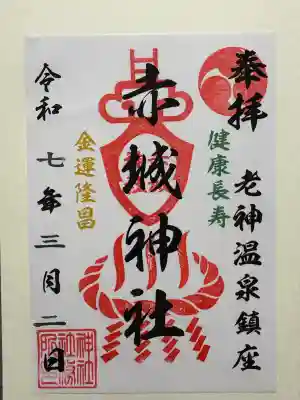 奉拝
老神温泉鎮座
健康長寿
赤城神社
金運隆昌
令和七年三月二日